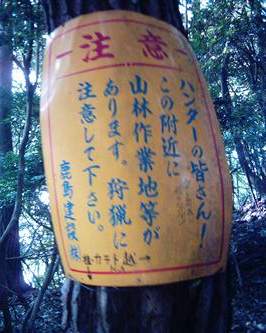 注意
ハンターの皆さん!
この附近に
山林作業地等が
あります。狩猟に
注意して下さい。
鹿島建設㈱